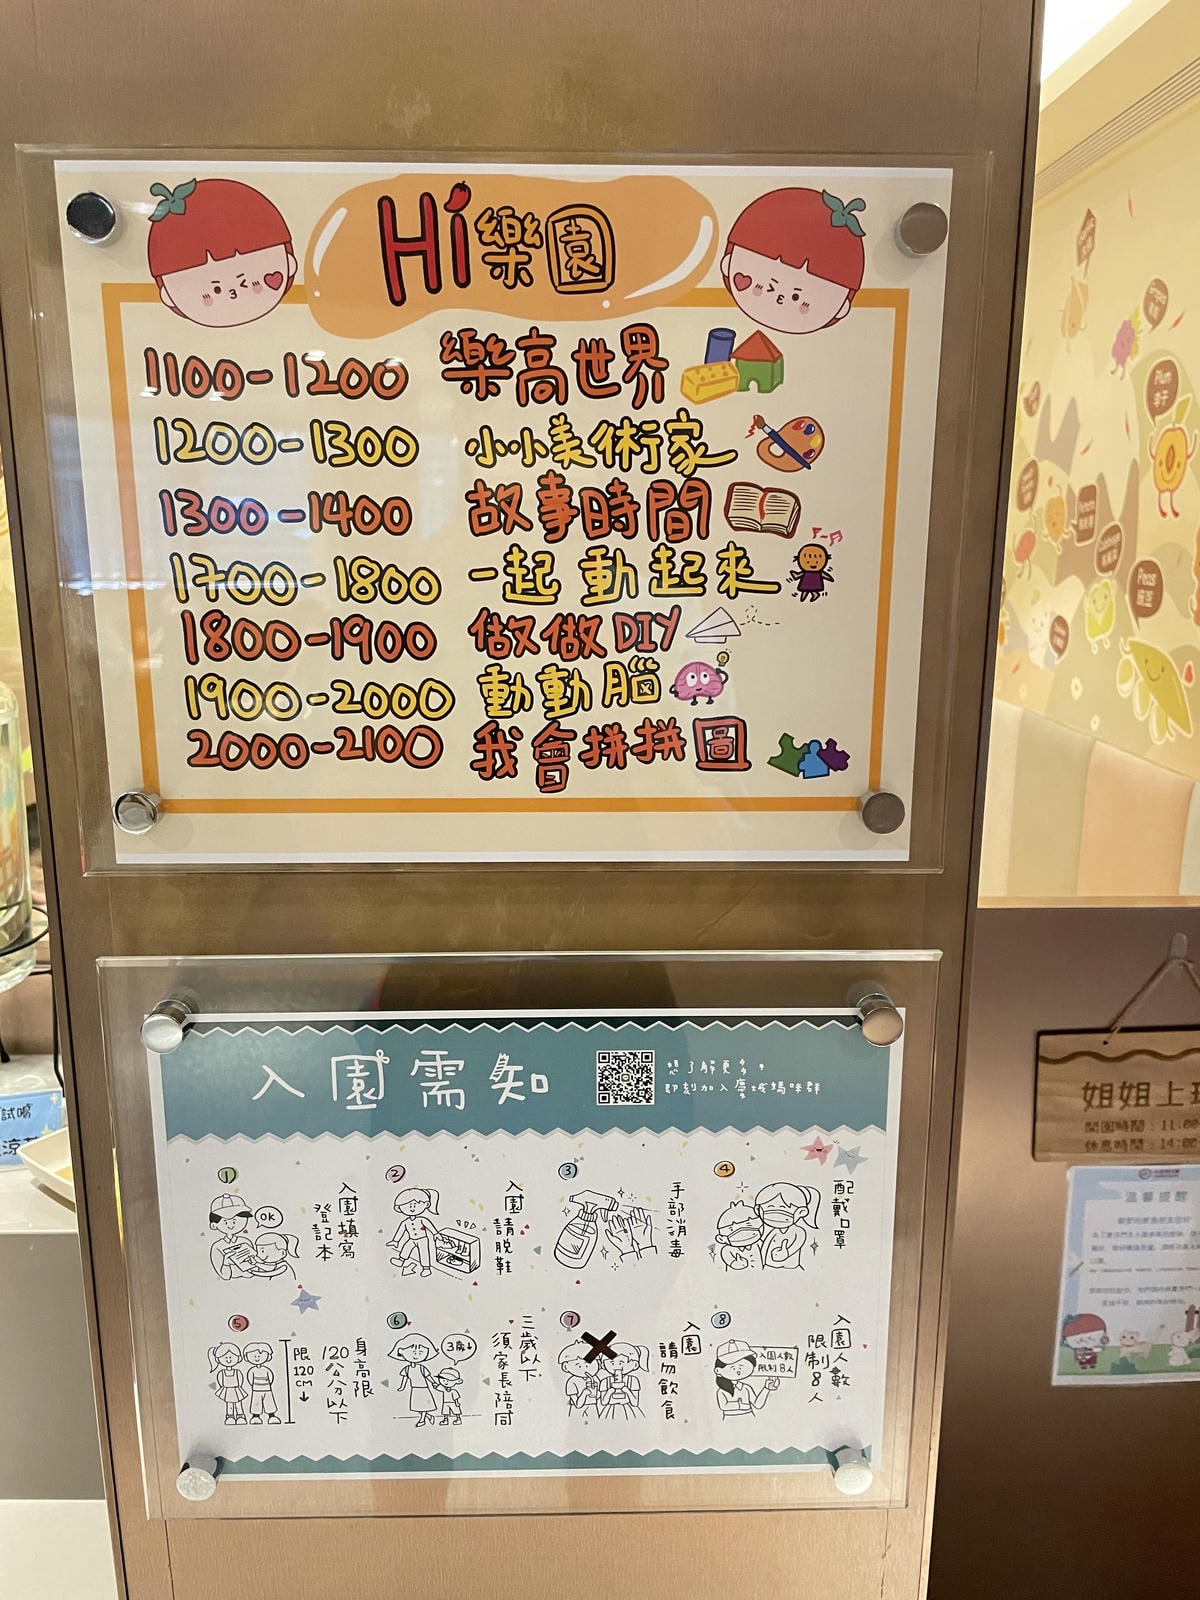 Hi樂園
1100-1200 樂高世界
1200-1300 小小美術家
1300-1400 故事時間
1700-1800 一起動起來
1800-1900 做做DIY
1900-2000 動動腦
2000-2100 我會拼拼圖
入園需知
想了解更多,
即刻加入慶城媽咪群
1
入園填寫
登記本
OK
2
入園
請脫鞋
3
手部消毒
4
配戴口罩
5
身高限
120公分以下
限
120
cm
↓
6
三歲以下
須家長陪同
3歲↓
7
入園
請勿飲食
8
入園人數
限制8人
入園人數
限制8人
姐姐上班
開園時間:11:00
休息時間:14:00
溫馨提醒
試喝
Plum
李子
Peas
豌豆